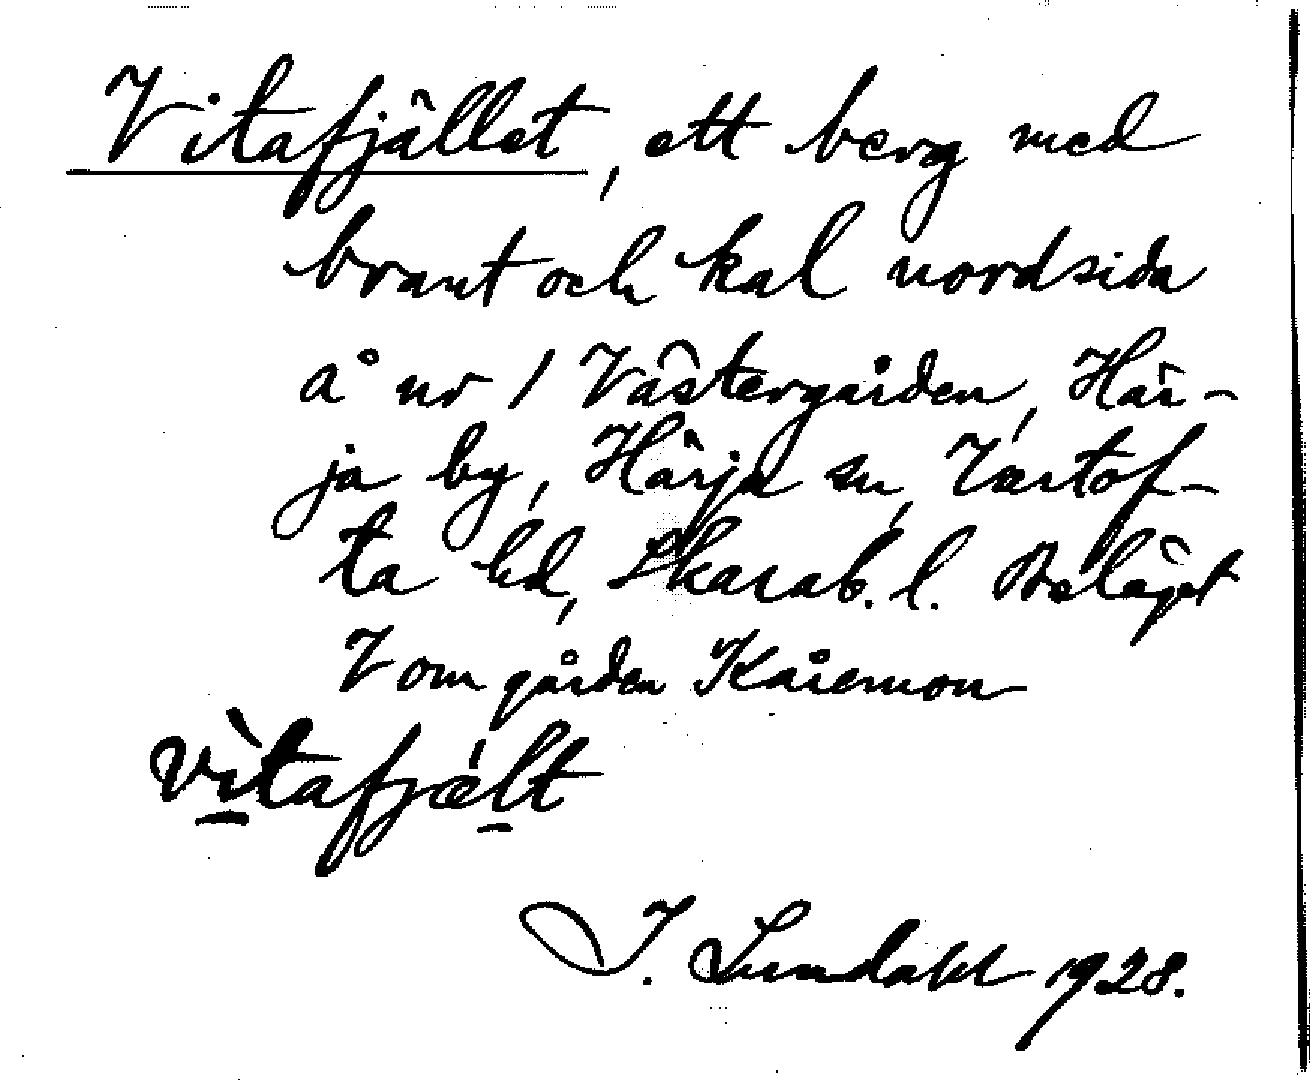 Vitafjället, ett berg med
brant och kal nordsida
å nr 1 Västergården, Här-
ja by, Härja sn, Vartof-
ta hd, Skarab. l. Beläget
V om gården Kåremon
vìtafjælt
I. Lundahl 1928.